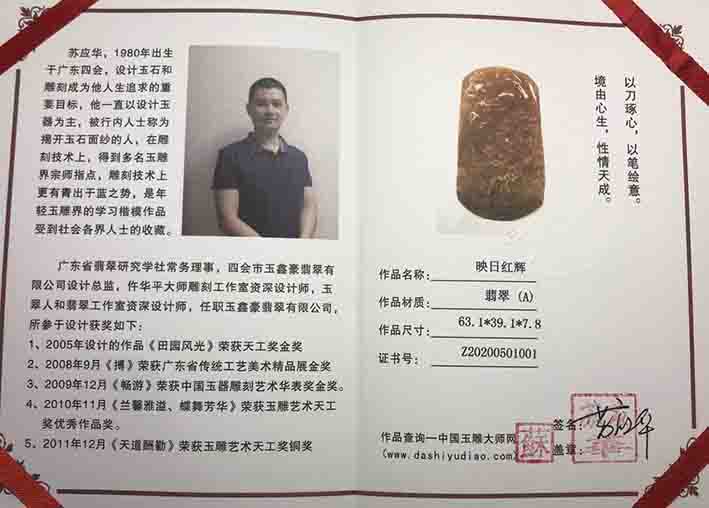 苏应华，1980年出生
于广东四会，设计玉石和
雕刻成为他人生追求的重
要目标，他一直以设计玉
器为主，被行内人士称为
揭开玉石面纱的人，在雕
刻技术上，得到多名玉雕
界宗师指点，雕刻技术上
更有青出于蓝之势，是年
轻玉雕界的学习楷模作品
受到社会各界人士的收藏。
广东省翡翠研究学社常务理事，四会市玉鑫豪翡翠有
限公司设计总监，仵华平大师雕刻工作室资深设计师，玉
翠人和翡翠工作室资深设计师，任职玉鑫豪翡翠有限公司，
所参于设计获奖如下：
1、2005年设计的作品《田园风光》荣获天工奖金奖
2、2008年9月《搏》荣获广东省传统工艺美术精品展金奖
3、2009年12月《畅游》荣获中国玉器雕刻艺术华表奖金奖。
4、2010年11月《兰馨雅溢、蝶舞芳华》荣获玉雕艺术天工
奖优秀作品奖。
5、2011年12月《天道酬勤》荣获玉雕艺术天工奖铜奖
以刀琢心，以笔绘意。
境由心生，性情天成。
作品名称：映日红辉
作品材质：翡翠（A）
作品尺寸：63.1*39.1*7.8
证书号：Z20200501001
签名：苏应华
作品查询—中国玉雕大师网
盖章：
(www.dashiyudiao.com)
苏